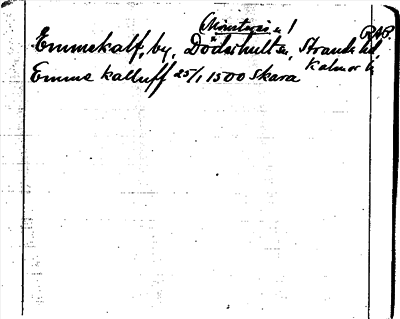 Mönsterås s!
RAP.
Emmekalf, by, Döderhults, Stranda hd
Kalmar l.
Emme kalluff 25/1 1500 Skara